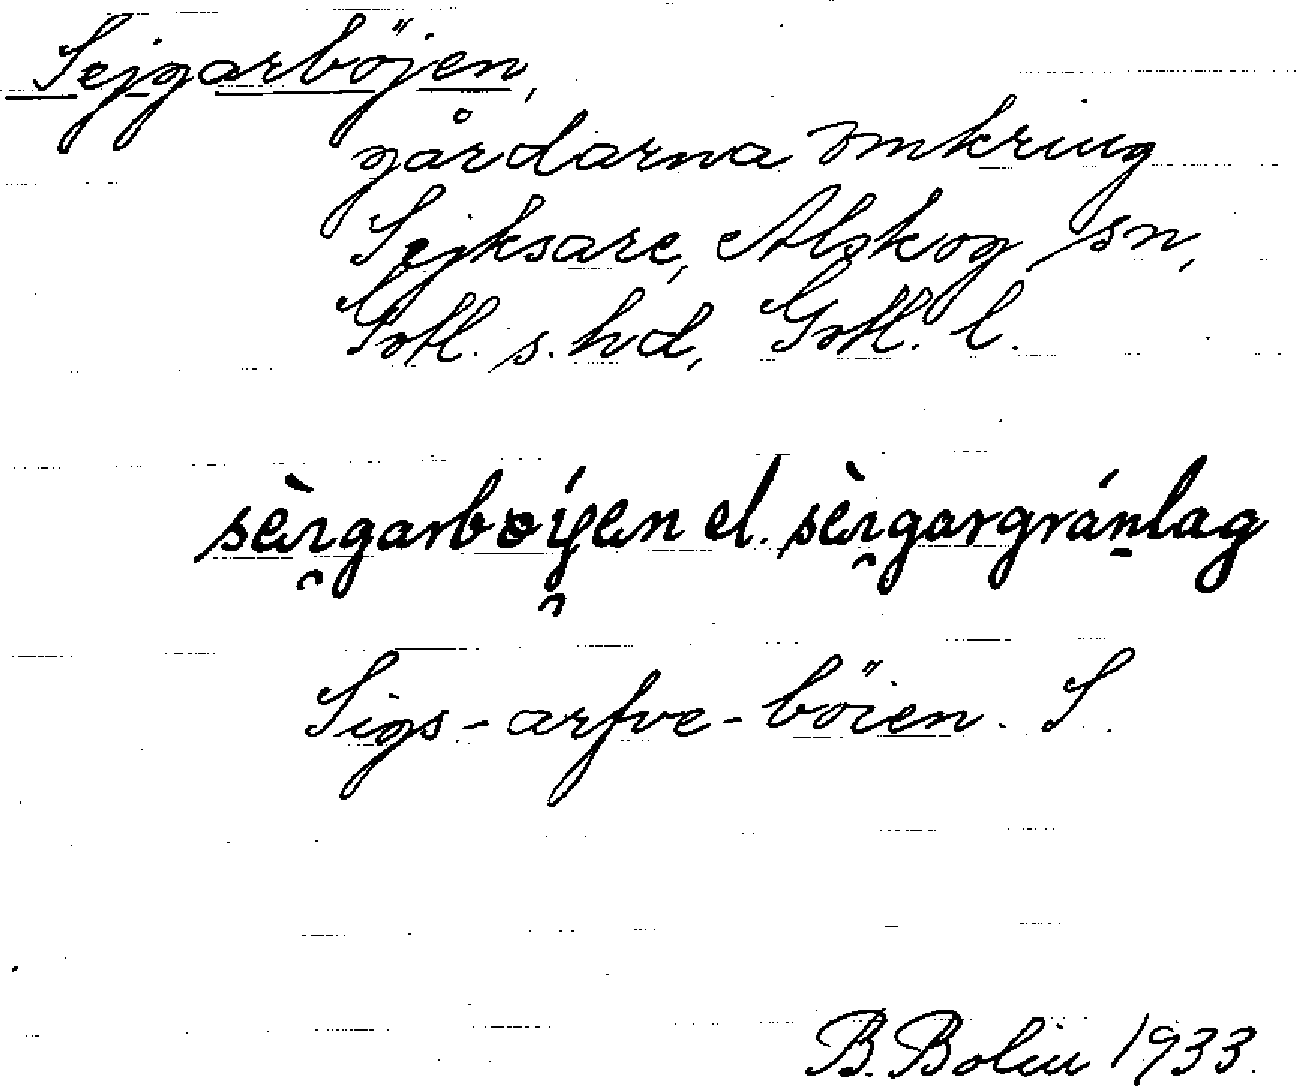 Sejgarböjen,
gårdarna omkring
Sejksare, Alskog sn,
Gotl. s. hd, Gotl. l.
el.
Sigs-arfve-böien. S.
B. Bolin 1933.